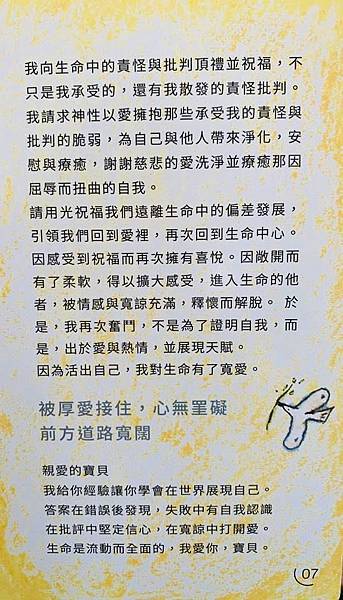 我向生命中的責怪與批判頂禮並祝福，不
只是我承受的，還有我散發的責怪批判。
我請求神性以愛擁抱那些承受我的責怪與
批判的脆弱，為自己與他人帶來淨化，安
慰與療癒，謝謝慈悲的愛洗淨並療癒那因
屈辱而扭曲的自我。
請用光祝福我們遠離生命中的偏差發展，
引領我們回到愛裡，再次回到生命中心。
因感受到祝福而再次擁有喜悅。因敞開而
有了柔軟，得以擴大感受，進入生命的他
者，被情感與寬諒充滿，釋懷而解脫。 於
是，我再次奮鬥，不是為了證明自我，而
是，出於愛與熱情，並展現天賦。
因為活出自己，我對生命有了寬愛。
被厚愛接住，心無罣礙
前方道路寬闊
親愛的寶貝
我給你經驗讓你學會在世界展現自己。
答案在錯誤後發現，失敗中有自我認識
在批評中堅定信心，在寬諒中打開愛。
生命是流動而全面的，我愛你，寶貝。
07